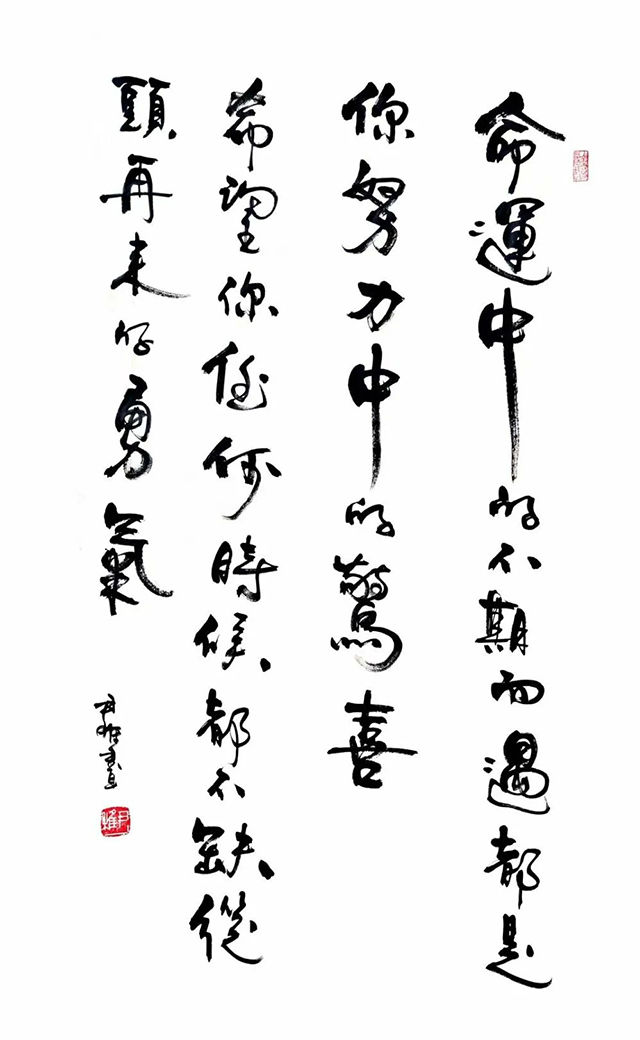 命運中的不期而遇都是
你努力中的驚喜
希望你任何時候都不缺從
頭再来的勇氣
尹雅書